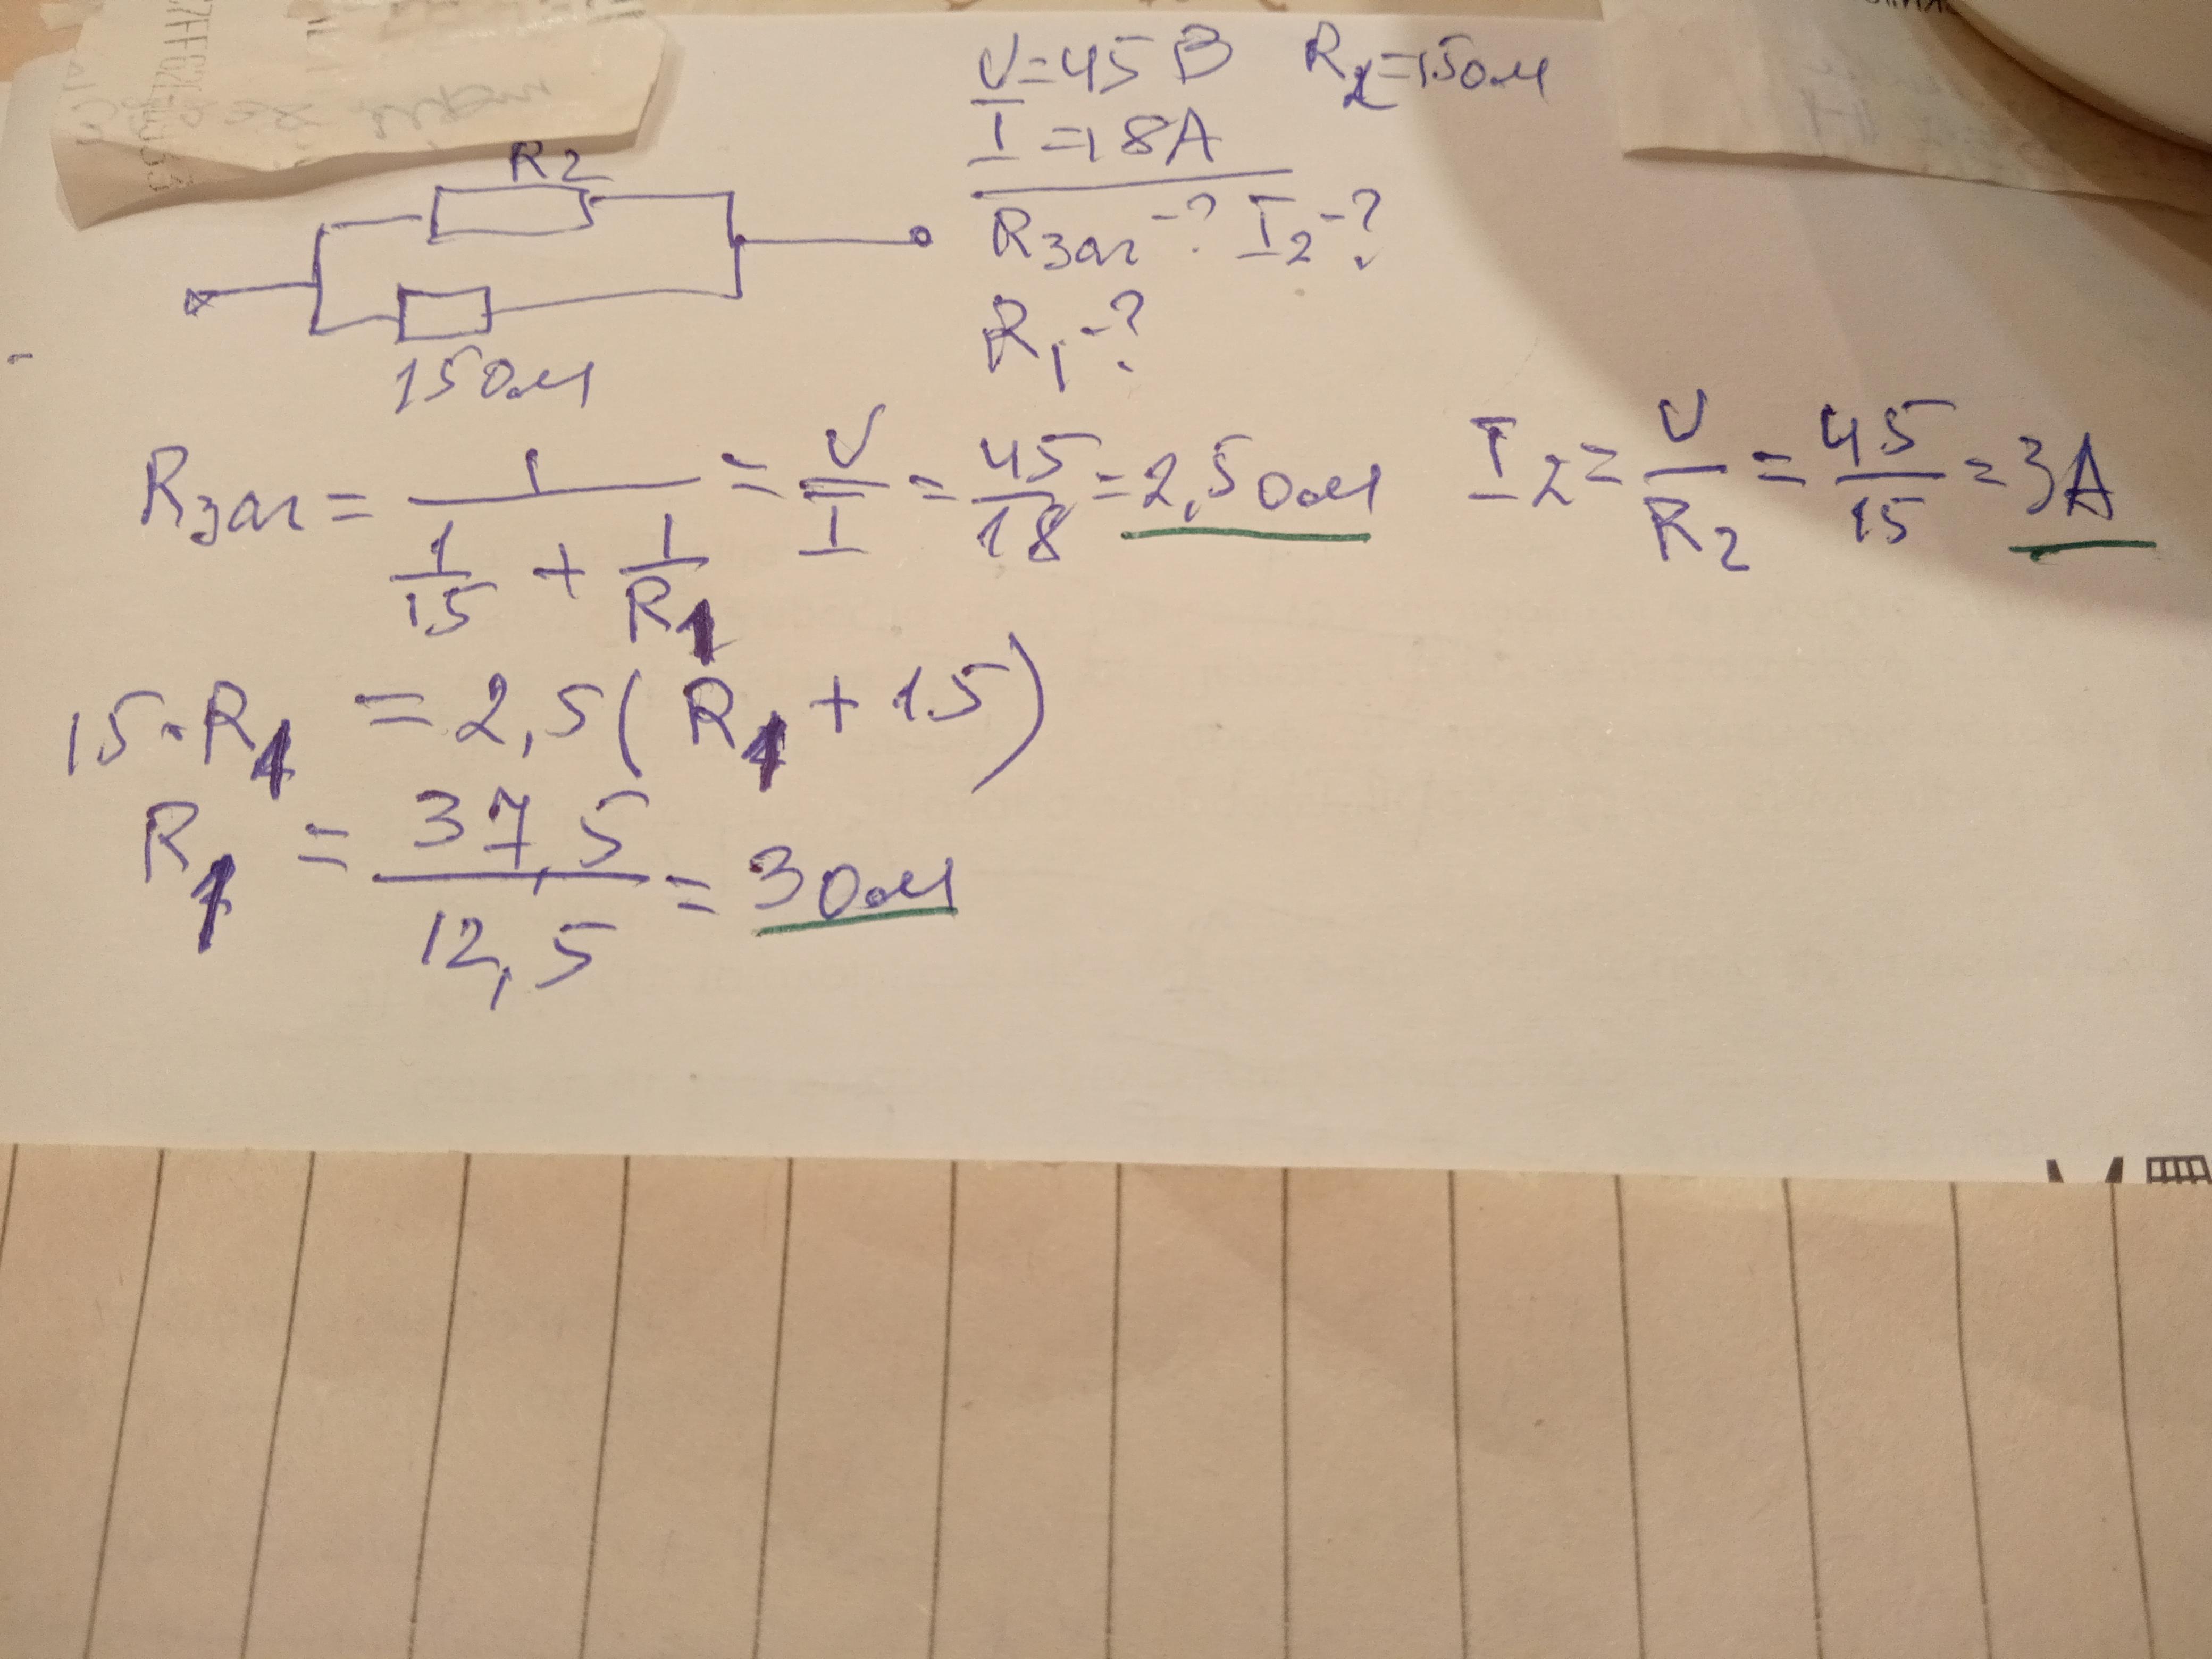 U=45 В R₂=15Ом
I=18А
Rзаг-? I₂-?
R₁-?
R2
15Ом
Rзаг = 1/(1/15 + 1/R₁) = U/I = 45/18 = 2,5Ом I₂ = U/R₂ = 45/15 = 3А
15·R₁ = 2,5(R₁+15)
R₁ = 37,5/12,5 = 3Ом